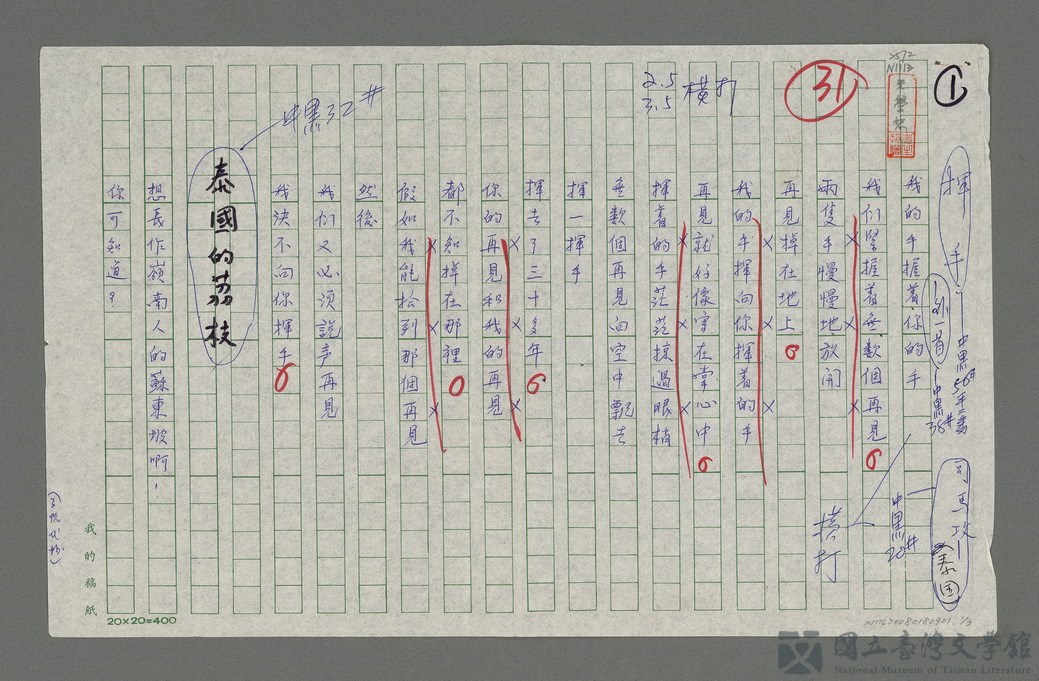 1
揮手
外一首
司馬攻
(泰国)
中黑20#
橫打
31
2.5
3.5
橫打
我的手握着你的手
我们緊握着無數個再見。
兩隻手慢慢地放開
再見掉在地上。
我的手揮向你揮着的手
再見就好像寫在掌心中。
揮着的手茫茫掠過眼梢
無數個再見向空中飄去
揮一揮手
揮去了三十多年。
你的再見和我的再見
都不知掉在那裡。
假如我能拾到那個再見
然後
我们又必須說声再見
我決不向你揮手。
中黑32#
泰國的荔枝
想長作嶺南人的蘇東坡啊!
你可知道?
我的稿紙
20×20=400
NMTL20080180901. 1/3
國立臺灣文學館
National Museum of Taiwan Literature